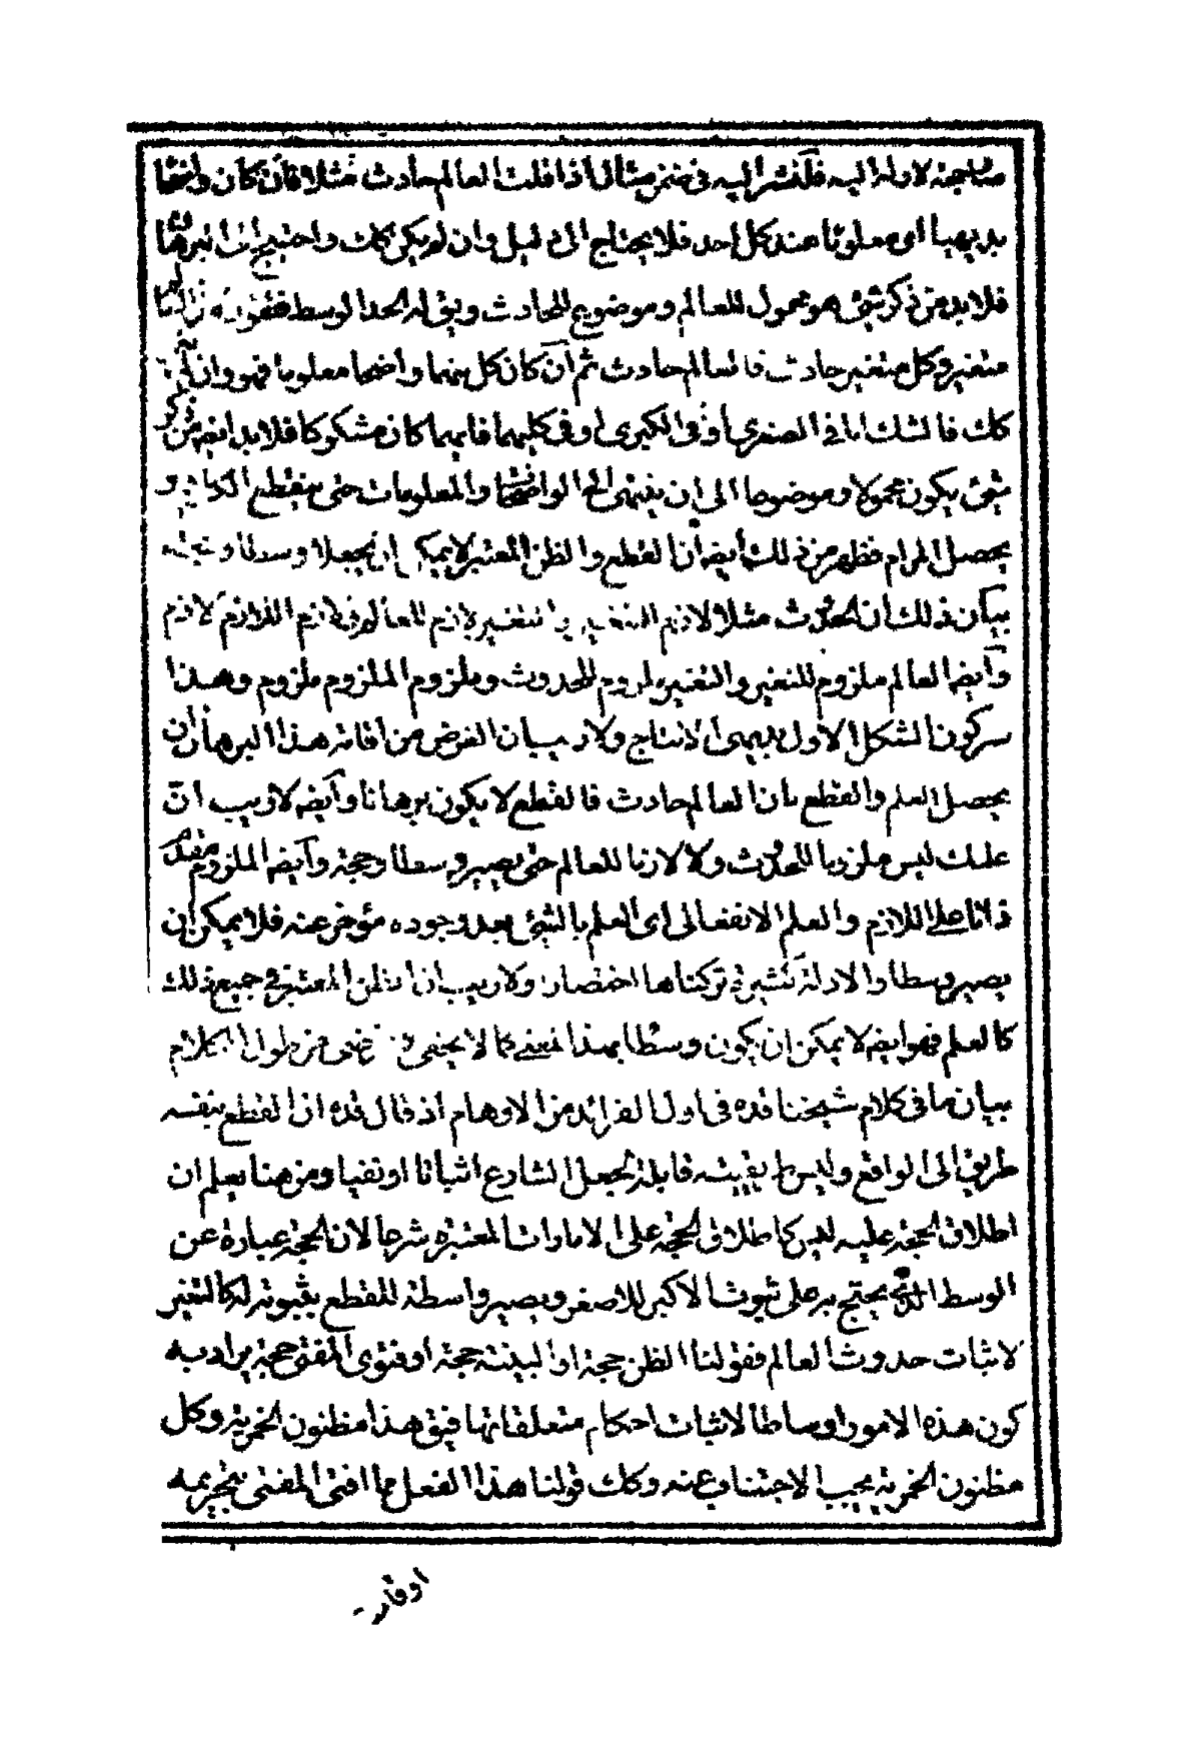 لا دلة اليه فلنشر اليه فى ضمن مثال اذا قلت العالم حادث مثلا فان كان واضحا
بديهيا اى معلوما عند كل احد فلا يحتاج الى دليل وان لم يكن كك واحتيج
فلا بد من ذكر شئ هو محمول للعالم وموضوع للحادث ويق له الحد الوسط فتقول
متغير وكل متغير حادث فالعالم حادث ثم ان كان كل منهما واضحا معلوما فهو وان لم يكن
كك فالشك اما فى الصغرى او فى الكبرى او فى كليهما فايهما كان مشكوكا فلا بد ايضه من ذكر
شئ يكون محمولا وموضوعا الى ان ينتهى الى الواضحات والمعلومات حتى ينقطع الكلام و
يحصل المرام فظهر من ذلك ايضه ان القطع والظن المعتبر لا يمكن ان يجعلا وسطا وحجة
بيان ذلك ان الحدوث مثلا لازم للتغير والتغير لازم للعالم فلازم اللازم لازم
وايضه العالم ملزوم للتغير والتغير ملزوم للحدوث وملزوم الملزوم ملزوم وهذا
سر كون الشكل الاول بديهى الانتاج ولا ريب ان الغرض من اقامة هذا البرهان ان
يحصل العلم والقطع بان العالم حادث فالقطع لا يكون برهانا وايضه لا ريب ان
علمك ليس ملزوما للحدوث ولا لازما للعالم حتى يصير وسطا وحجة وايضه الملزوم مقدم
ذاتا على اللازم والعلم الانفعالى اى العلم بالشئ بعد وجوده مؤخر عنه فلا يمكن ان
يصير وسطا والادلة كثيرة تركناها اختصارا ولا ريب ان الظن المعتبر فى جميع ذلك
كالعلم فهو ايضه لا يمكن ان يكون وسطا بهذا المعنى كما لا يخفى من طول الكلام
بيان ما فى كلام شيخنا قده فى اول الفرائد من الاوهام اذ قال قده ان القطع بنفسه
طريق الى الواقع وليس طريقيته قابلة لجعل الشارع اثباتا او نفيا ومن هنا يعلم ان
اطلاق الحجة عليه ليس كاطلاق الحجة على الامارات المعتبره شرعا لان الحجة عبارة عن
الوسط الذى يحتج به على ثبوت الاكبر للاصغر ويصير واسطة للقطع بثبوته له كالتغير
لاثبات حدوث العالم فقولنا الظن حجة او البينة حجة او فتوى المفتى حجة يراد به
كون هذه الامور اوساطا لاثبات احكام متعلقاتها فيق هذا مظنون الخمرية وكل
مظنون الخمرية يجب الاجتناب عنه وكك قولنا هذا الفعل مما افتى المفتى بتحريمه